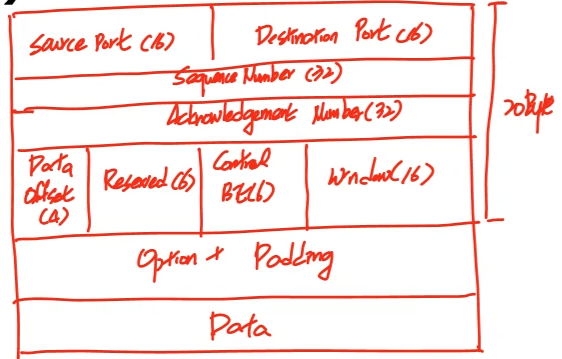 Source Port (16) Destination Port (16)
Sequence Number (32)
Acknowledgement Number (32)
Data Offset (4) Reserved (6) Control Bit(6) Window(16)
20 Byte
Option + Padding
Data